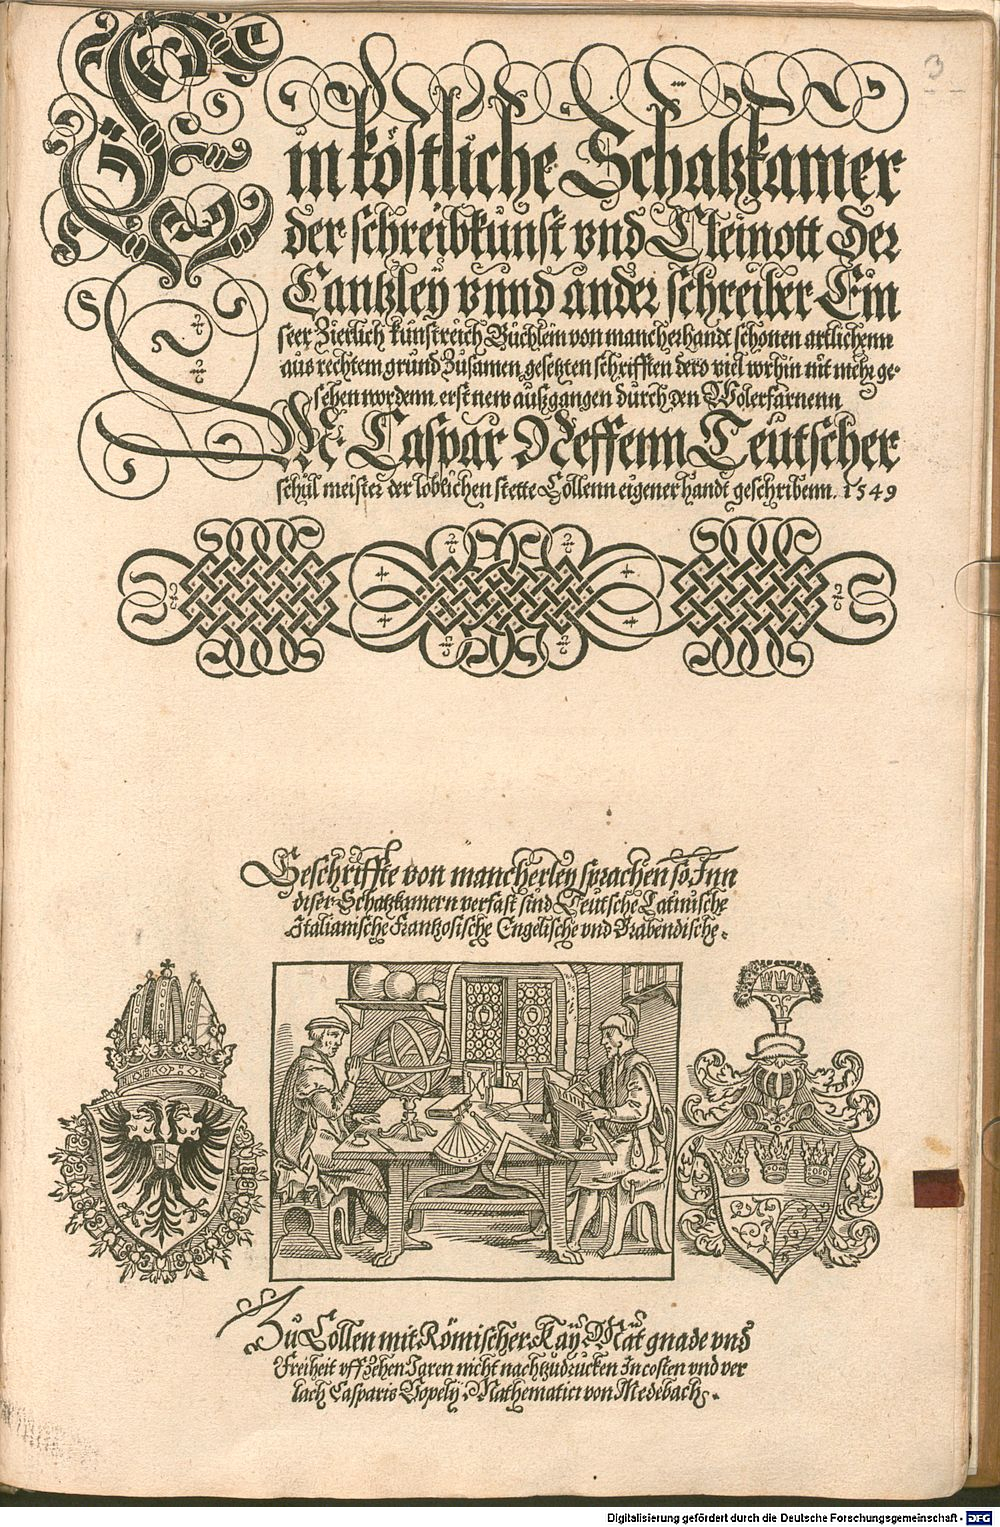 3
Ein köstliche Schatzkamer
der schreibkunst vnd Cleinott der
Cantzley vnnd ander schreiber Ein
seer Zierlich kunstreich Büchlein von mancherhandt schonen artlichenn
aus rechtem grund Zusamen gesetzten schrifften dero viel vorhin nit mehr ge-
sehen wordenn erst new außgangen durch den Wolerfarnenn
M. Caspar Neffenn Teutscher
schul meister der loblichen stette Cöllenn eigener handt geschribenn. 1549
Geschriffte von mancherley sprachen so Inn
diser Schatzkamern verfast sind Teutsche Latinische
Italianische Frantzosische Engelische vnd Brabendische.
Zu Collen mit Römischer Kay. Mät gnade vnd
Freiheit vff Zehen Jaren nicht nachtzudrucken In costen vnd ver
lach Casparis Vopelij Mathematici von Medebach.
Digitalisierung gefördert durch die Deutsche Forschungsgemeinschaft - DFG